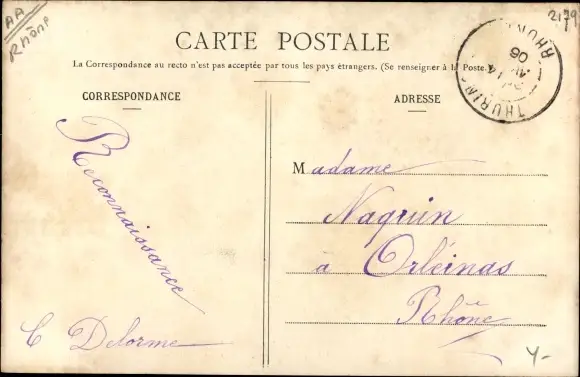 AA
Rhône
2179
CARTE POSTALE
La Correspondance au recto n'est pas acceptée par tous les pays étrangers. (Se renseigner à la Poste.)
CORRESPONDANCE
ADRESSE
THURINS
RHONE
14
06
Reconnaissance
C Delorme
Madame
Naquin
à Orléinas
Rhône
4-